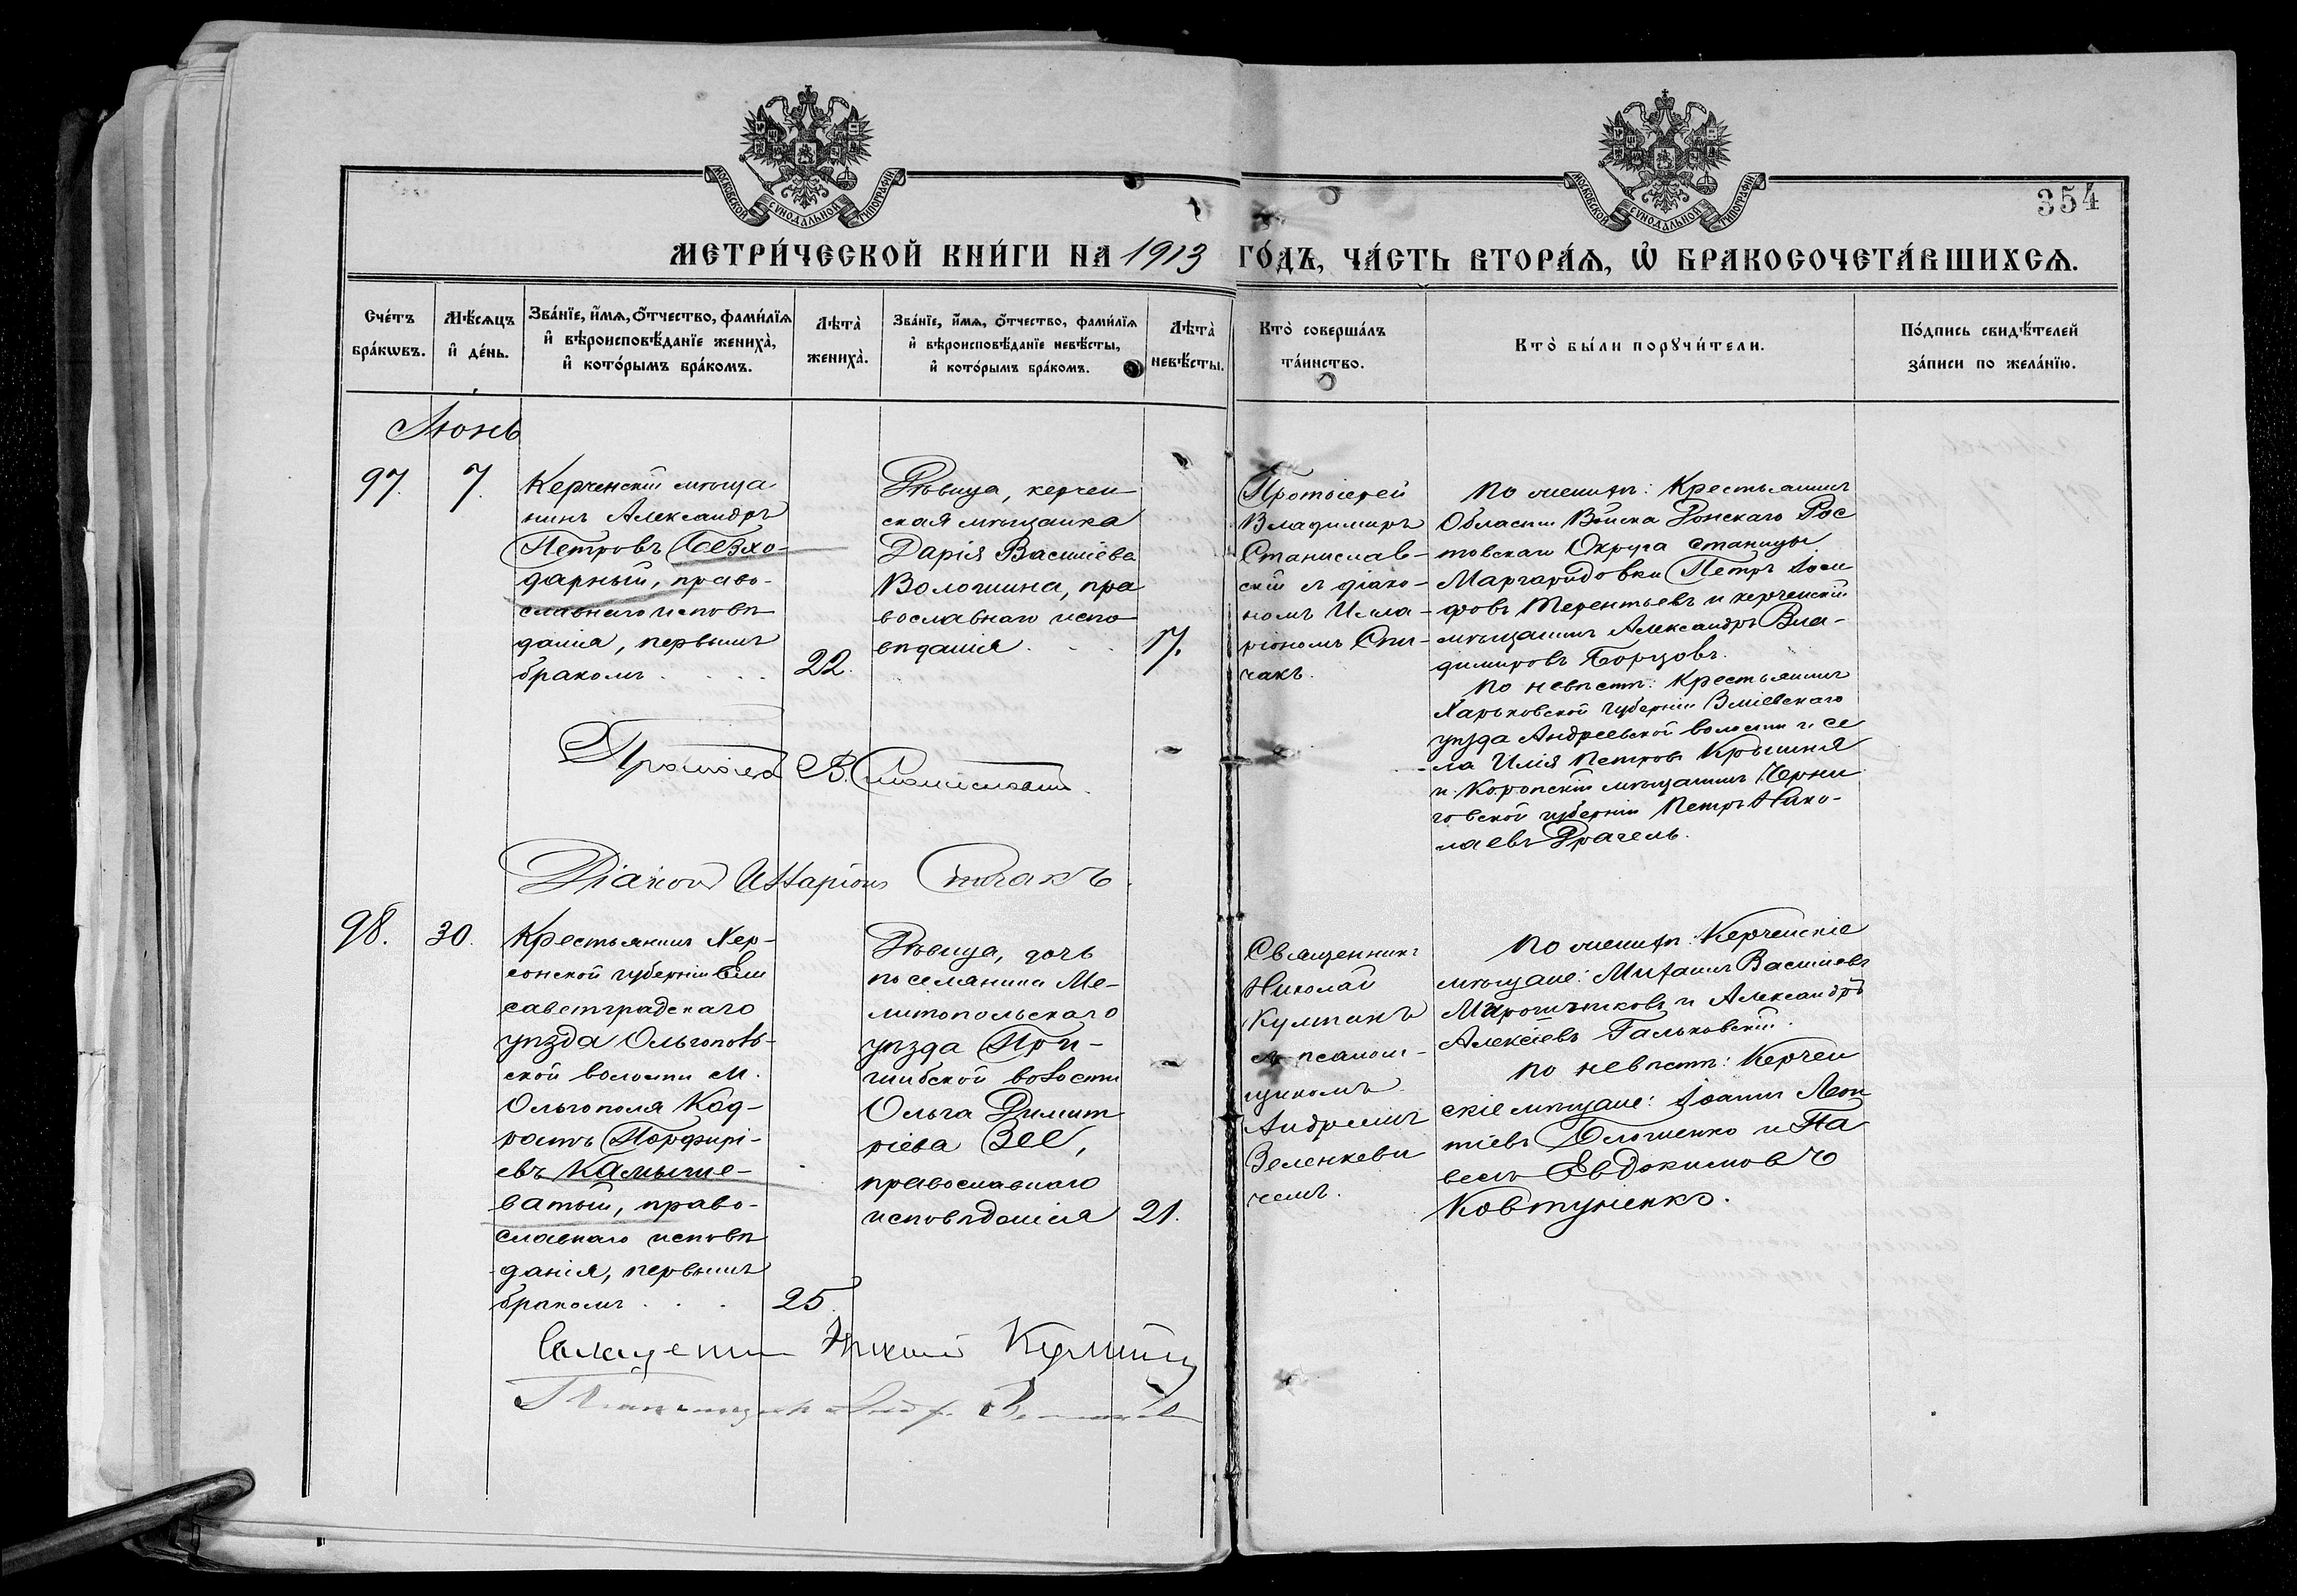 МОСКОВСКОЙ СѴНОДАЛЬНОЙ ТИПОГРАФІИ
МОСКОВСКОЙ СѴНОДАЛЬНОЙ ТИПОГРАФІИ
354
МЕТРИ́ЧЕСКОЙ КНИ́ГИ НА 1913 ГО́ДЪ, ЧА́СТЬ ВТОРА́Ѧ, Ѡ҆ БРАКОСОЧЕТА́ВШИХСѦ.
Сче́тъ бра́кѡвъ.
Мѣ́сѧцъ и҆ де́нь.
Зва́нїе, и҆́мѧ, ѻ҆́тчество, фами́лїѧ и҆ вѣроисповѣ́данїе жениха̀, и҆ кото́рымъ бра́комъ.
Лѣта̀ жениха̀.
Зва́нїе, и҆́мѧ, ѻ҆́тчество, фами́лїѧ и҆ вѣроисповѣ́данїе невѣ́сты, и҆ кото́рымъ бра́комъ.
Лѣта̀ невѣ́сты.
Кто̀ соверша́лъ та́инство.
Кто̀ бы́ли порꙋчи́тели.
По́дпись свидѣ́телей за́писи по жела́нїю.
Іюнь
97.
7.
Керченскій мѣща
нинъ Александръ
Петровъ Безхо-
дарный, право-
славнаго исповѣ
данія, первымъ
бракомъ . . . .
22.
Дѣвица, керчен
ская мѣщанка
Дарія Василіева
Волошина, пра
вославнаго испо
вѣданія . . .
17.
Протоіерей
Владимиръ
Станислав-
скій съ діако-
номъ Илла-
ріономъ Спи-
чакъ.
По женихѣ: Крестьянинъ
Области Войска Донскаго Рос
товскаго Округа станицы
Маргаридовки Петръ Іоси
фовъ Терентьевъ и керченскій
мѣщанинъ Александръ Вла-
димировъ Борцовъ.
По невѣстѣ: крестьянинъ
Харьковской губерніи Зміевскаго
уѣзда Андреевской волости и се
ла Илія Петровъ Крышня
и Коропскій мѣщанинъ Черни
говской губерніи Петръ Нико-
лаевъ Драчель.
Протоіерей В. Станиславскій.
Діаконъ Илларіонъ Спичакъ.
98.
30.
Крестьянинъ Хер-
сонской губерніи Ели
саветградскаго
уѣзда Ольгополь-
ской волости м.
Ольгополя Код-
ратъ Порфирі-
евъ Камыше-
ватый, право-
славнаго исповѣ
данія, первымъ
бракомъ . . .
25.
Дѣвица, дочь
поселянина Ме-
литопольскаго
уѣзда При-
шибской волости
Ольга Димит
ріева Зее,
православнаго
исповѣданія
21.
Священникъ
Николай
Култинъ
съ псалом-
щикомъ
Андреемъ
Зеленкеви
чемъ.
По женихѣ: Керченскіе
мѣщане: Михаилъ Васильевъ
Мирошниковъ и Александръ
Алексіевъ Гальковскій.
По невѣстѣ: Керчен
скіе мѣщане: Іоаннъ Леон
тіевъ Блошенко и Па
велъ Евдокимовъ
Ковтуненко.
Священникъ Николай
Псаломщикъ Андр.